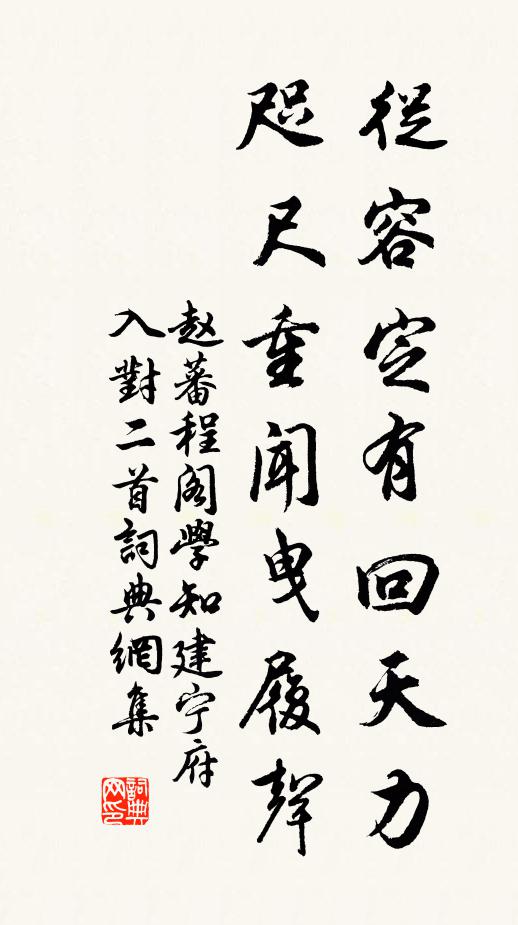 從容定有回天力
咫尺重聞曳履聲
赵蕃程阁學知建宁府
入對二首詞典網集
詞典